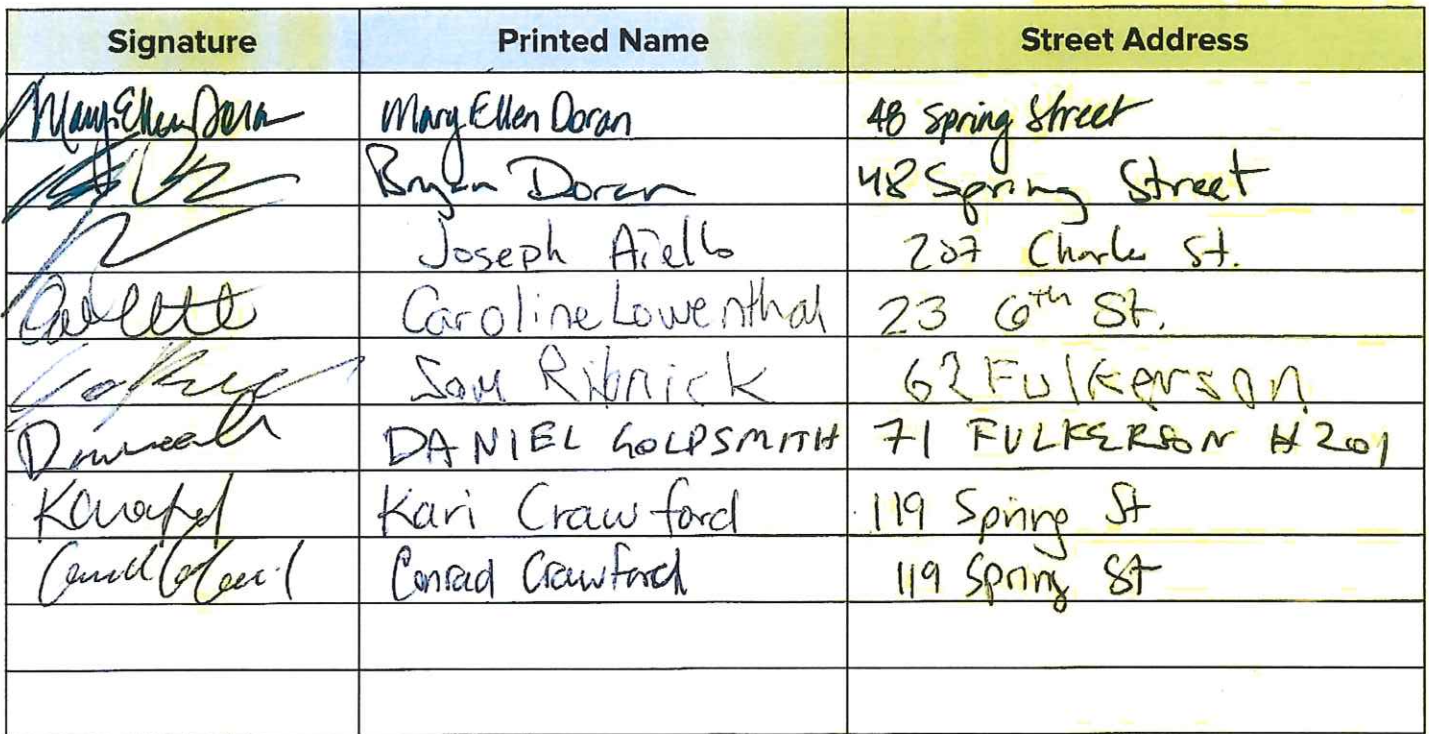 Signature Printed Name Street Address
Mary Ellen Doran Mary Ellen Doran 48 Spring Street
Bryan Doran 48 Spring Street
Joseph Aiello 207 Charles St.
Caroline Lowenthal 23 6th St.
Sam Ribnick 62 Fulkerson
DANIEL GOLDSMITH 71 FULKERSON #201
KCrawford Kari Crawford 119 Spring St
Conrad Crawford 119 Spring St